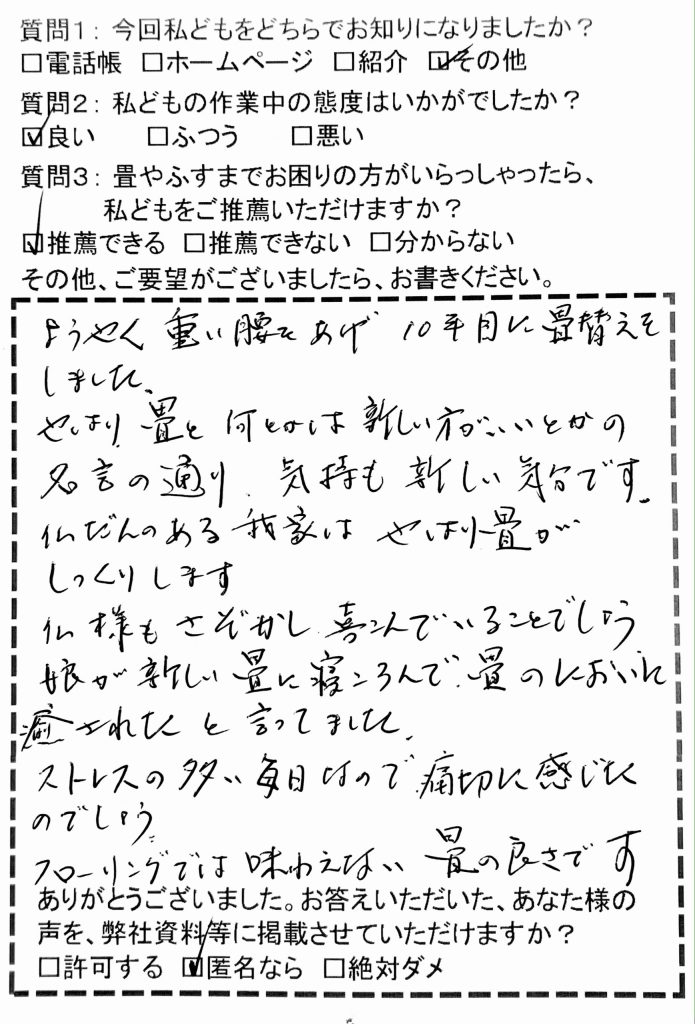 質問1: 今回私どもをどちらでお知りになりましたか?
□電話帳 □ホームページ □紹介 ☑その他
質問2: 私どもの作業中の態度はいかがでしたか?
☑良い □ふつう □悪い
質問3: 畳やふすまでお困りの方がいらっしゃったら、
私どもをご推薦いただけますか?
☑推薦できる □推薦できない □分からない
その他、ご要望がございましたら、お書きください。
ようやく 重い腰をあげ 10年目に畳替えを
しました。
やはり、畳と何とかは新しい方がいいとかの
名言の通り、気持も新しい気分です。
仏だんのある我家は やはり畳が
しっくりします
仏様もさぞかし喜こんでいることでしょう
娘が新しい畳に寝ころんで、畳のにおいに
癒されたと言ってました。
ストレスの多い毎日なので、痛切に感じた
のでしょう。
フローリングでは味わえない 畳の良さです
ありがとうございました。お答えいただいた、あなた様の
声を、弊社資料等に掲載させていただけますか?
□許可する ☑匿名なら □絶対ダメ